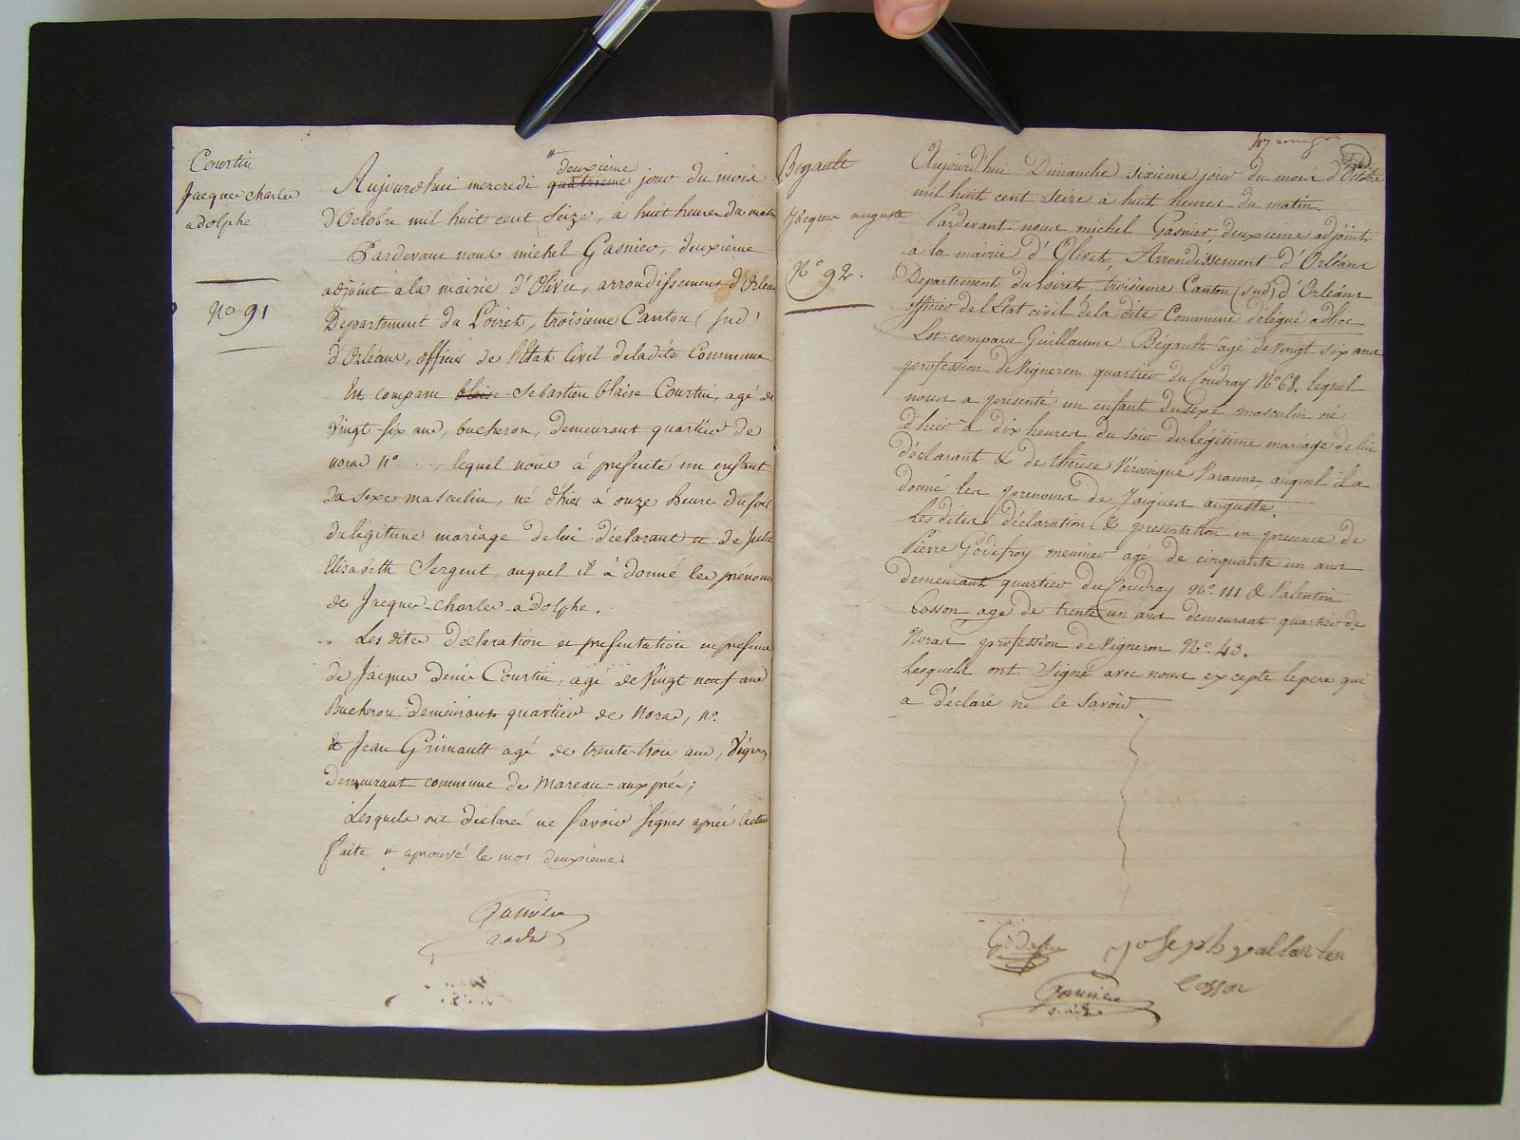 Courtin
Jacques charles
adolphe
No 91
deuxième
Aujourdhui mercredi quatrieme jour du mois
d'Octobre mil huit cent Seize, a huit heures du matin
Pardevant nous michel Gasnier, deuxième
adjoint à la mairie d'Olivet, arrondissement d'Orléans
Departement du Loiret, troisieme Canton (sud)
d'Orléans, officier de l'Etat Civil deladite Commune
Est comparu blaise Sebastien blaise Courtin, agé de
Vingt-six ans, bucheron, demeurant quartier de
noras n° lequel nous à présenté un enfant
du sexe masculin, né d'hier à onze heure du soir
du legitime mariage delui déclarant et de Julie
Elisabeth Sergent, auquel il à donné les prénoms
de Jacques-charles-adolphe.
Les dites déclaration et présentation en présence
de Jacques denis Courtin, agé de Vingt neuf ans
Bucheron demeurant quartier de Noras, n°.
& Jean Grimault agé de trente-trois ans, Vigneron
Demeurant commune de Mareau-aux-prés;
Lesquels ont déclaré ne Savoir signer après lecture
faite # aprouvé le mot deuxième.
Gasnier
adj
Bigault
Jacques auguste
N° 92.
Aujourd'hui Dimanche sixieme jour du mois d'Octobre
mil huit cent seize à huit heures du matin
Pardevant nous michel Gasnier, deuxieme adjoint
a la mairie d'Olivet Arrondissement d'Orléans
Departement du Loiret troisieme Canton (sud) d'Orléans
officier de l'Etat civil de la dite Commune délégué adhoc
Est comparu Guillaume Bigault agé de vingt six ans
profession de Vigneron quartier du Coudray N° 68. lequel
nous a présenté un enfant du sexe masculin né
d'hier à dix heures du soir du légitime mariage de lui
déclarant & de thérese Véronique Paranne, auquel il a
donné les prenoms de Jacques auguste.
Les dites déclaration & presentation en presence de
Pierre Godefroy meunier agé de cinquante un ans
demeurant quartier du Coudray N° 111 & Valentin
Cosson agé de trente un ans demeurant quartier de
Noras profession de Vigneron N° 43.
Lesquels ont signé avec nous excepté le pere qui
a déclaré ne le Savoir
Joseph vallanten
Cosson
Gasnier